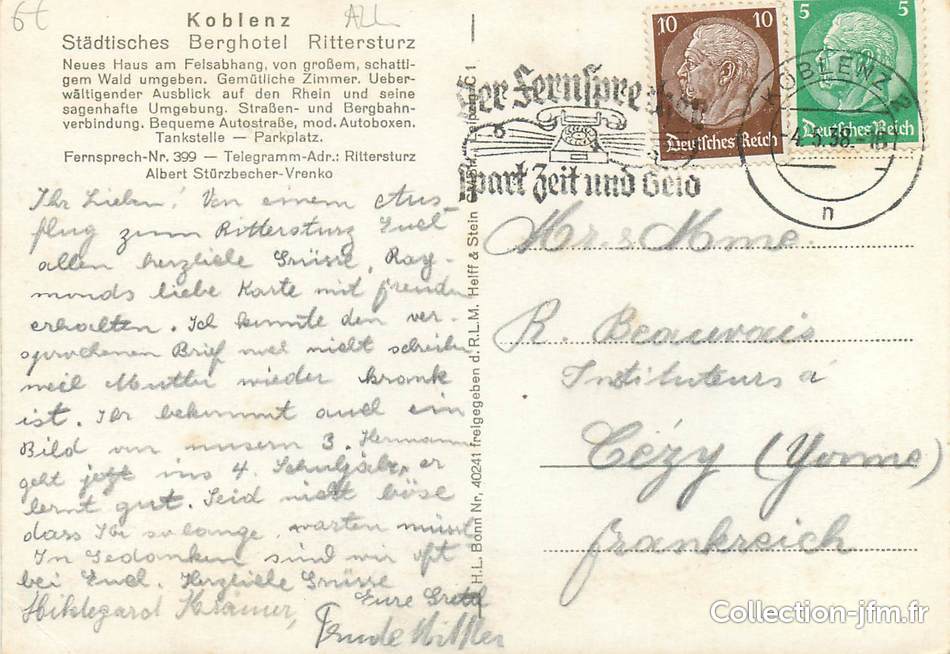 6€
Koblenz
Städtisches Berghotel Rittersturz
Neues Haus am Felsabhang, von großem, schatti-
gem Wald umgeben. Gemütliche Zimmer. Ueber-
wältigender Ausblick auf den Rhein und seine
sagenhafte Umgebung. Straßen- und Bergbahn-
verbindung. Bequeme Autostraße, mod. Autoboxen.
Tankstelle — Parkplatz.
Fernsprech-Nr. 399 — Telegramm-Adr.: Rittersturz
Albert Stürzbecher-Vrenko
Ihr Lieben! Von einem Aus-
flug zum Rittersturz Euch
allen herzliche Grüsse, Ray-
monds liebe Karte mit freuden
erhalten. Ich konnte den ver-
sprochenen Brief noch nicht schreiben
weil Mutter wieder krank
ist. Ihr bekommt auch ein
Bild von unsern 3. Hermann
geht jetzt ins 4. Schuljahr, er
lernt gut. Seid nicht böse
dass Ihr so lange warten müsst.
In Gedanken sind wir oft
bei Euch. Herzliche Grüsse
Eure Gretel
Hildegard Krämer,
H.L. Bonn Nr. 40241 freigegeben d. R.L.M. Helff & Stein Leipzig C 1
Der Fernsprecher
spart Zeit und Geld
10 10
Deutsches Reich
5 5
Deutsches Reich
KOBLENZ 2
-4.5.38.-
n
Mr. & Mme.
R. Beauvais
Instituteurs à
Cézy (Yonne)
Frankreich
Collection-jfm.fr